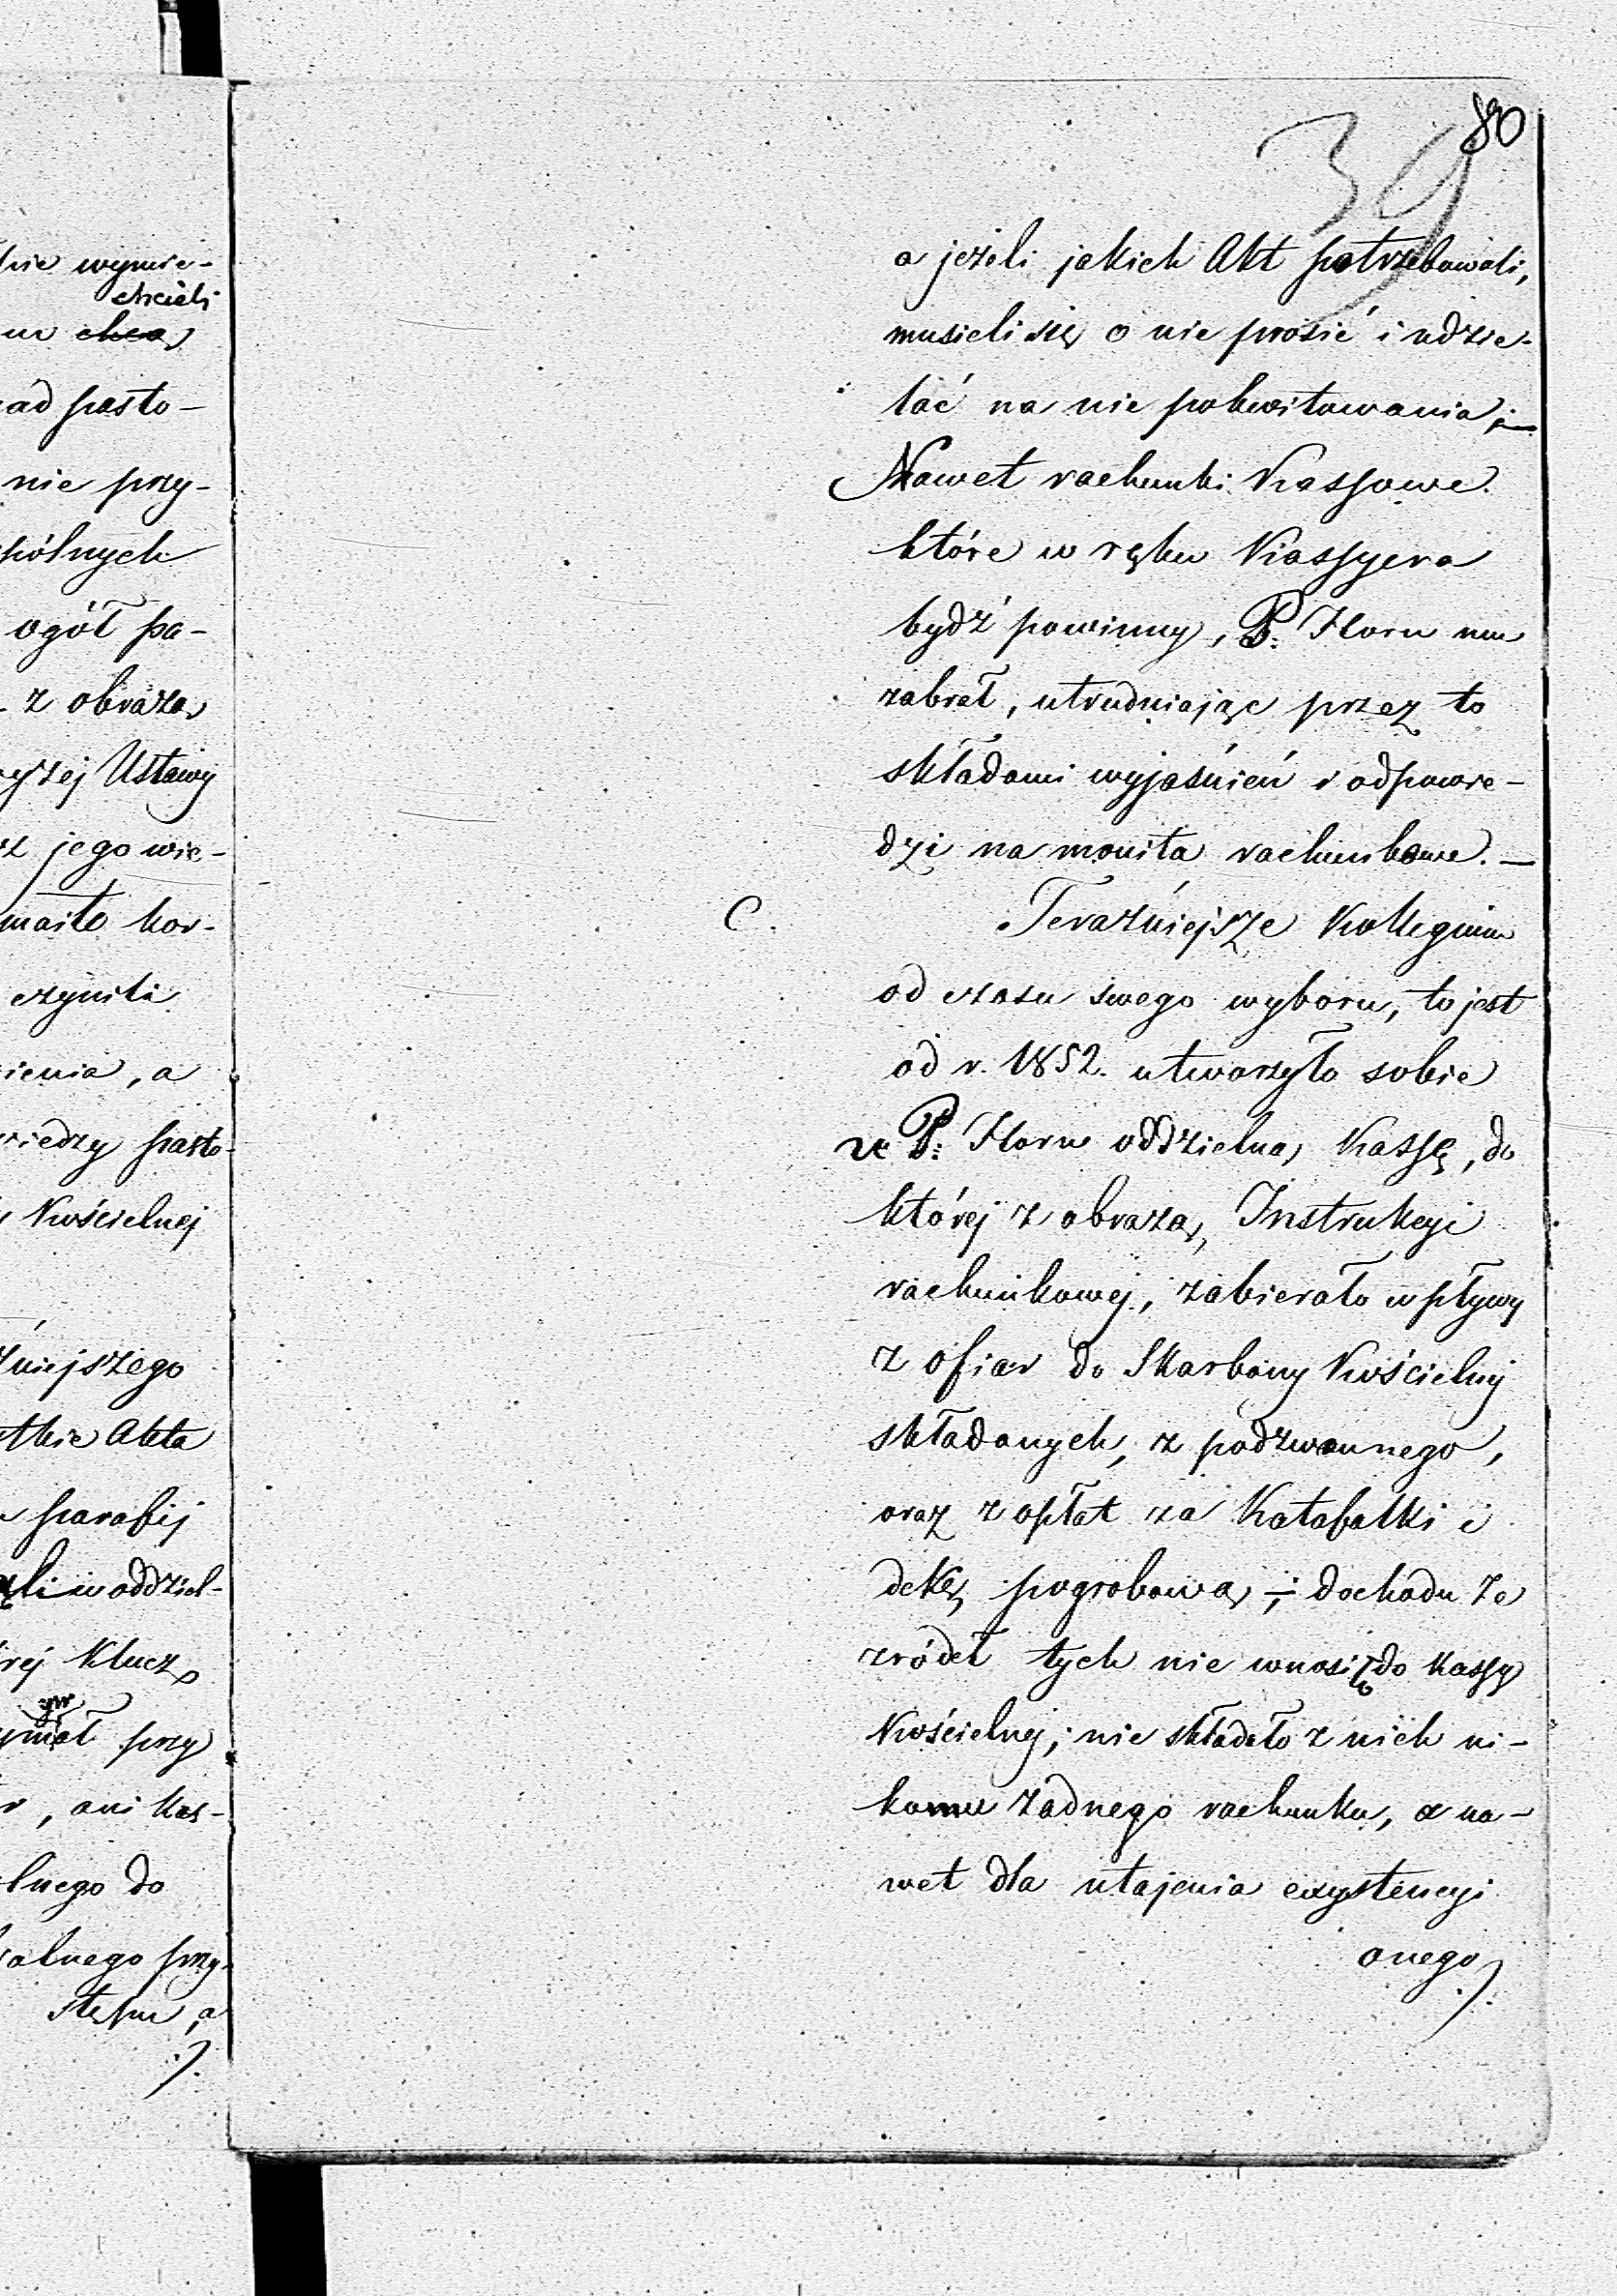 80
39
a jeżeli jakich Akt potrzebowali,
musieli się o nie prosić i udzie-
lać na nie pokwitowania;—
Nawet rachunki Kassowe
które w ręku Kassyera
bydź powinny, P. Horn mu
zabrał, utrudniając przez to
składani wyjaśnień i odpowie-
dzi na monita rachunkowe.—
C. Teraźniejsze Kollegium
od czasu swego wyboru, to jest
od r. 1852. utworzyło sobie
u P: Horn oddzielną Kassę, do
której z obrazą Instrukcyi
rachunkowej, zabierało wpływy
z ofiar do Skarbony Kościelnej
składanych, z podzwonnego,
oraz z opłat za Katafalki i
dekę pogrobową;— dochodu ze
zródeł tych nie wnosiło do Kassy
Kościelnej; nie składało z nich ni-
komu żadnego rachunku, a na-
wet dla utajenia exystencyi
onego
hie wymie-
chcieli
m chcą
ad pasto-
nie przy-
spólnych
ogół pa-
z obrazą
yszej Ustawy
z jego wie-
maite kor-
czynili
ienia, a
wiedzy pasto-
Kościelnej
źniejszego
stkie Akta
parafij
li w oddziel-
rej Klucz
ymał przy
yw
, ani Kas-
lnego do
alnego przy-
stępu, a